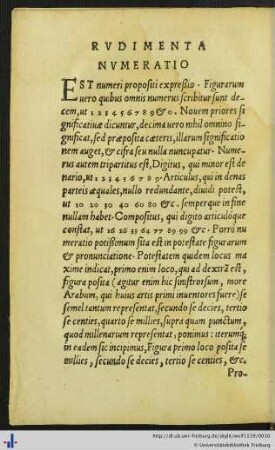 RVDIMENTA
NVMERATIO
EST numeri propositi expreßio · Figurarum
uero quibus omnis numerus scribitur sunt de-
cem, ut 1 2 3 4 5 6 7 8 9 & 0 . Nouem priores si
gnificatiuæ dicuntur, decima uero nihil omnino si-
gnificat, sed præposita cæteris, illarum significatio
nem auget, & cifra seu nulla nuncupatur · Nume-
rus autem tripartitus est, Digitus, qui minor est de
nario, ut 1 2 3 4 5 6 7 8 9 · Articulus, qui in denas
parteis æquales, nullo redundante, diuidi potest,
ut 10 20 30 40 60 80 &c . semperque in fine
nullam habet · Compositus, qui digito articuloque
constat, ut 16 26 33 64 77 89 99 &c · Porrò nu
meratio potißimum sita est in potestate figurarum
& pronunciatione · Potestatem quidem locus ma
xime indicat, primo enim loco, qui ad dextrã est,
figura posita (agitur enim hic sinistrorsum, more
Arabum, qui huius artis primi inuentores fuere) se
semel tantum representat, secundo se decies, tertio
se centies, quarto se millies, supra quam punctum,
quod millenarum representat, ponimus : iterumq;
in eadem sic incipimus, Figura primo loco posita se
millies , secundo se decies , tertio se centies , & c.
Pro-
http://dl.ub.uni-freiburg.de/diglit/wolf1539/0010
© Universitätsbibliothek Freiburg